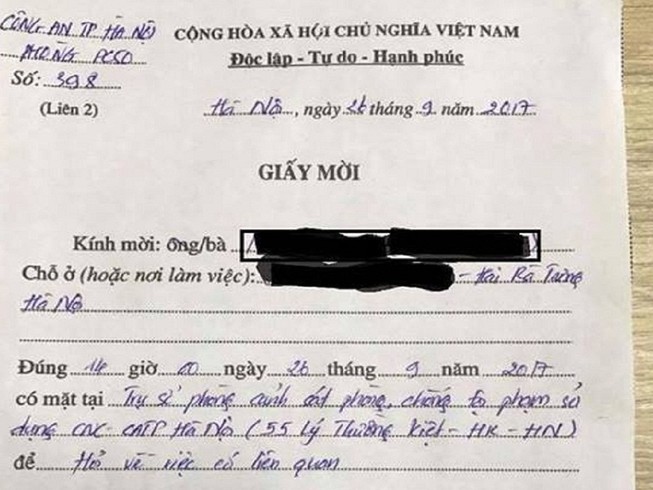 CÔNG AN TP HÀ NỘI
PHÒNG PC50
Số: 398
(Liên 2)
CỘNG HÒA XÃ HỘI CHỦ NGHĨA VIỆT NAM
Độc lập - Tự do - Hạnh phúc
Hà Nội, ngày 26 tháng 9 năm 2017
GIẤY MỜI
Kính mời: ông/bà
Chỗ ở (hoặc nơi làm việc): - Hai Bà Trưng
Hà Nội
Đúng 14 giờ 00 ngày 26 tháng 9 năm 2017
có mặt tại Trụ sở phòng cảnh sát phòng, chống tội phạm sử
dụng CNC - CATP Hà Nội (55 Lý Thường Kiệt - HK - HN)
để Hỏi về việc có liên quan